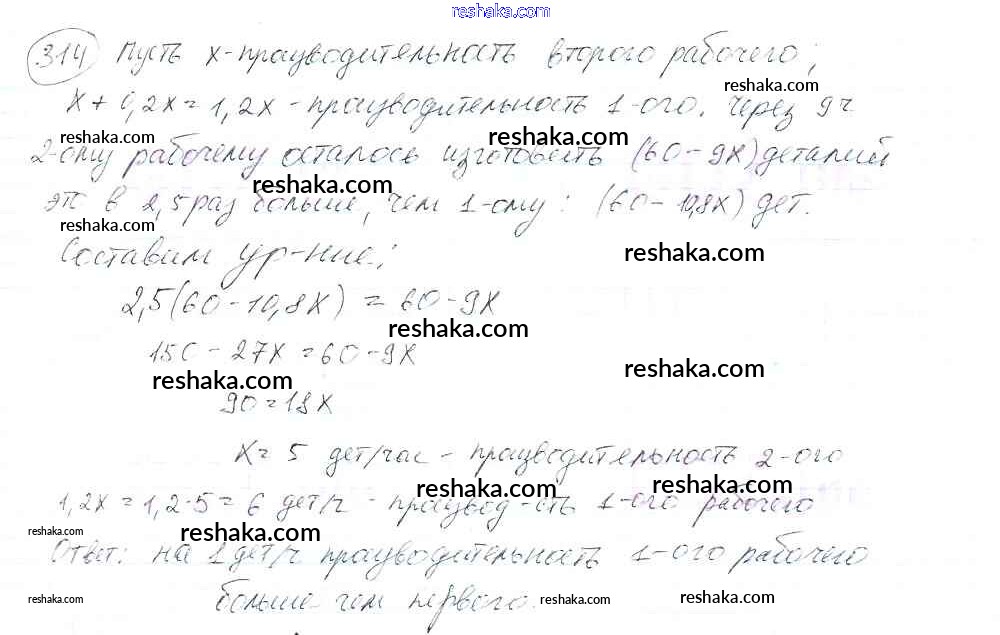 reshaka.com
314 Пусть x - производительность второго рабочего;
reshaka.com
x + 0,2x = 1,2x - производительность 1-ого. Через 9 ч
reshaka.com reshaka.com
2-ому рабочему осталось изготовить (60 - 9x) деталий
reshaka.com
это в 2,5 раз больше, чем 1-ому: (60 - 10,8x) дет.
reshaka.com
Составим ур-ние:
reshaka.com
2,5(60 - 10,8x) = 60 - 9x
reshaka.com
150 - 27x = 60 - 9x
reshaka.com reshaka.com
90 = 18x
x = 5 дет/час - производительность 2-ого
reshaka.com reshaka.com
1,2x = 1,2·5 = 6 дет/ч - производ-сть 1-ого рабочего
reshaka.com reshaka.com
Ответ: на 1 дет/ч производительность 1-ого рабочего
больше чем первого.
reshaka.com reshaka.com reshaka.com